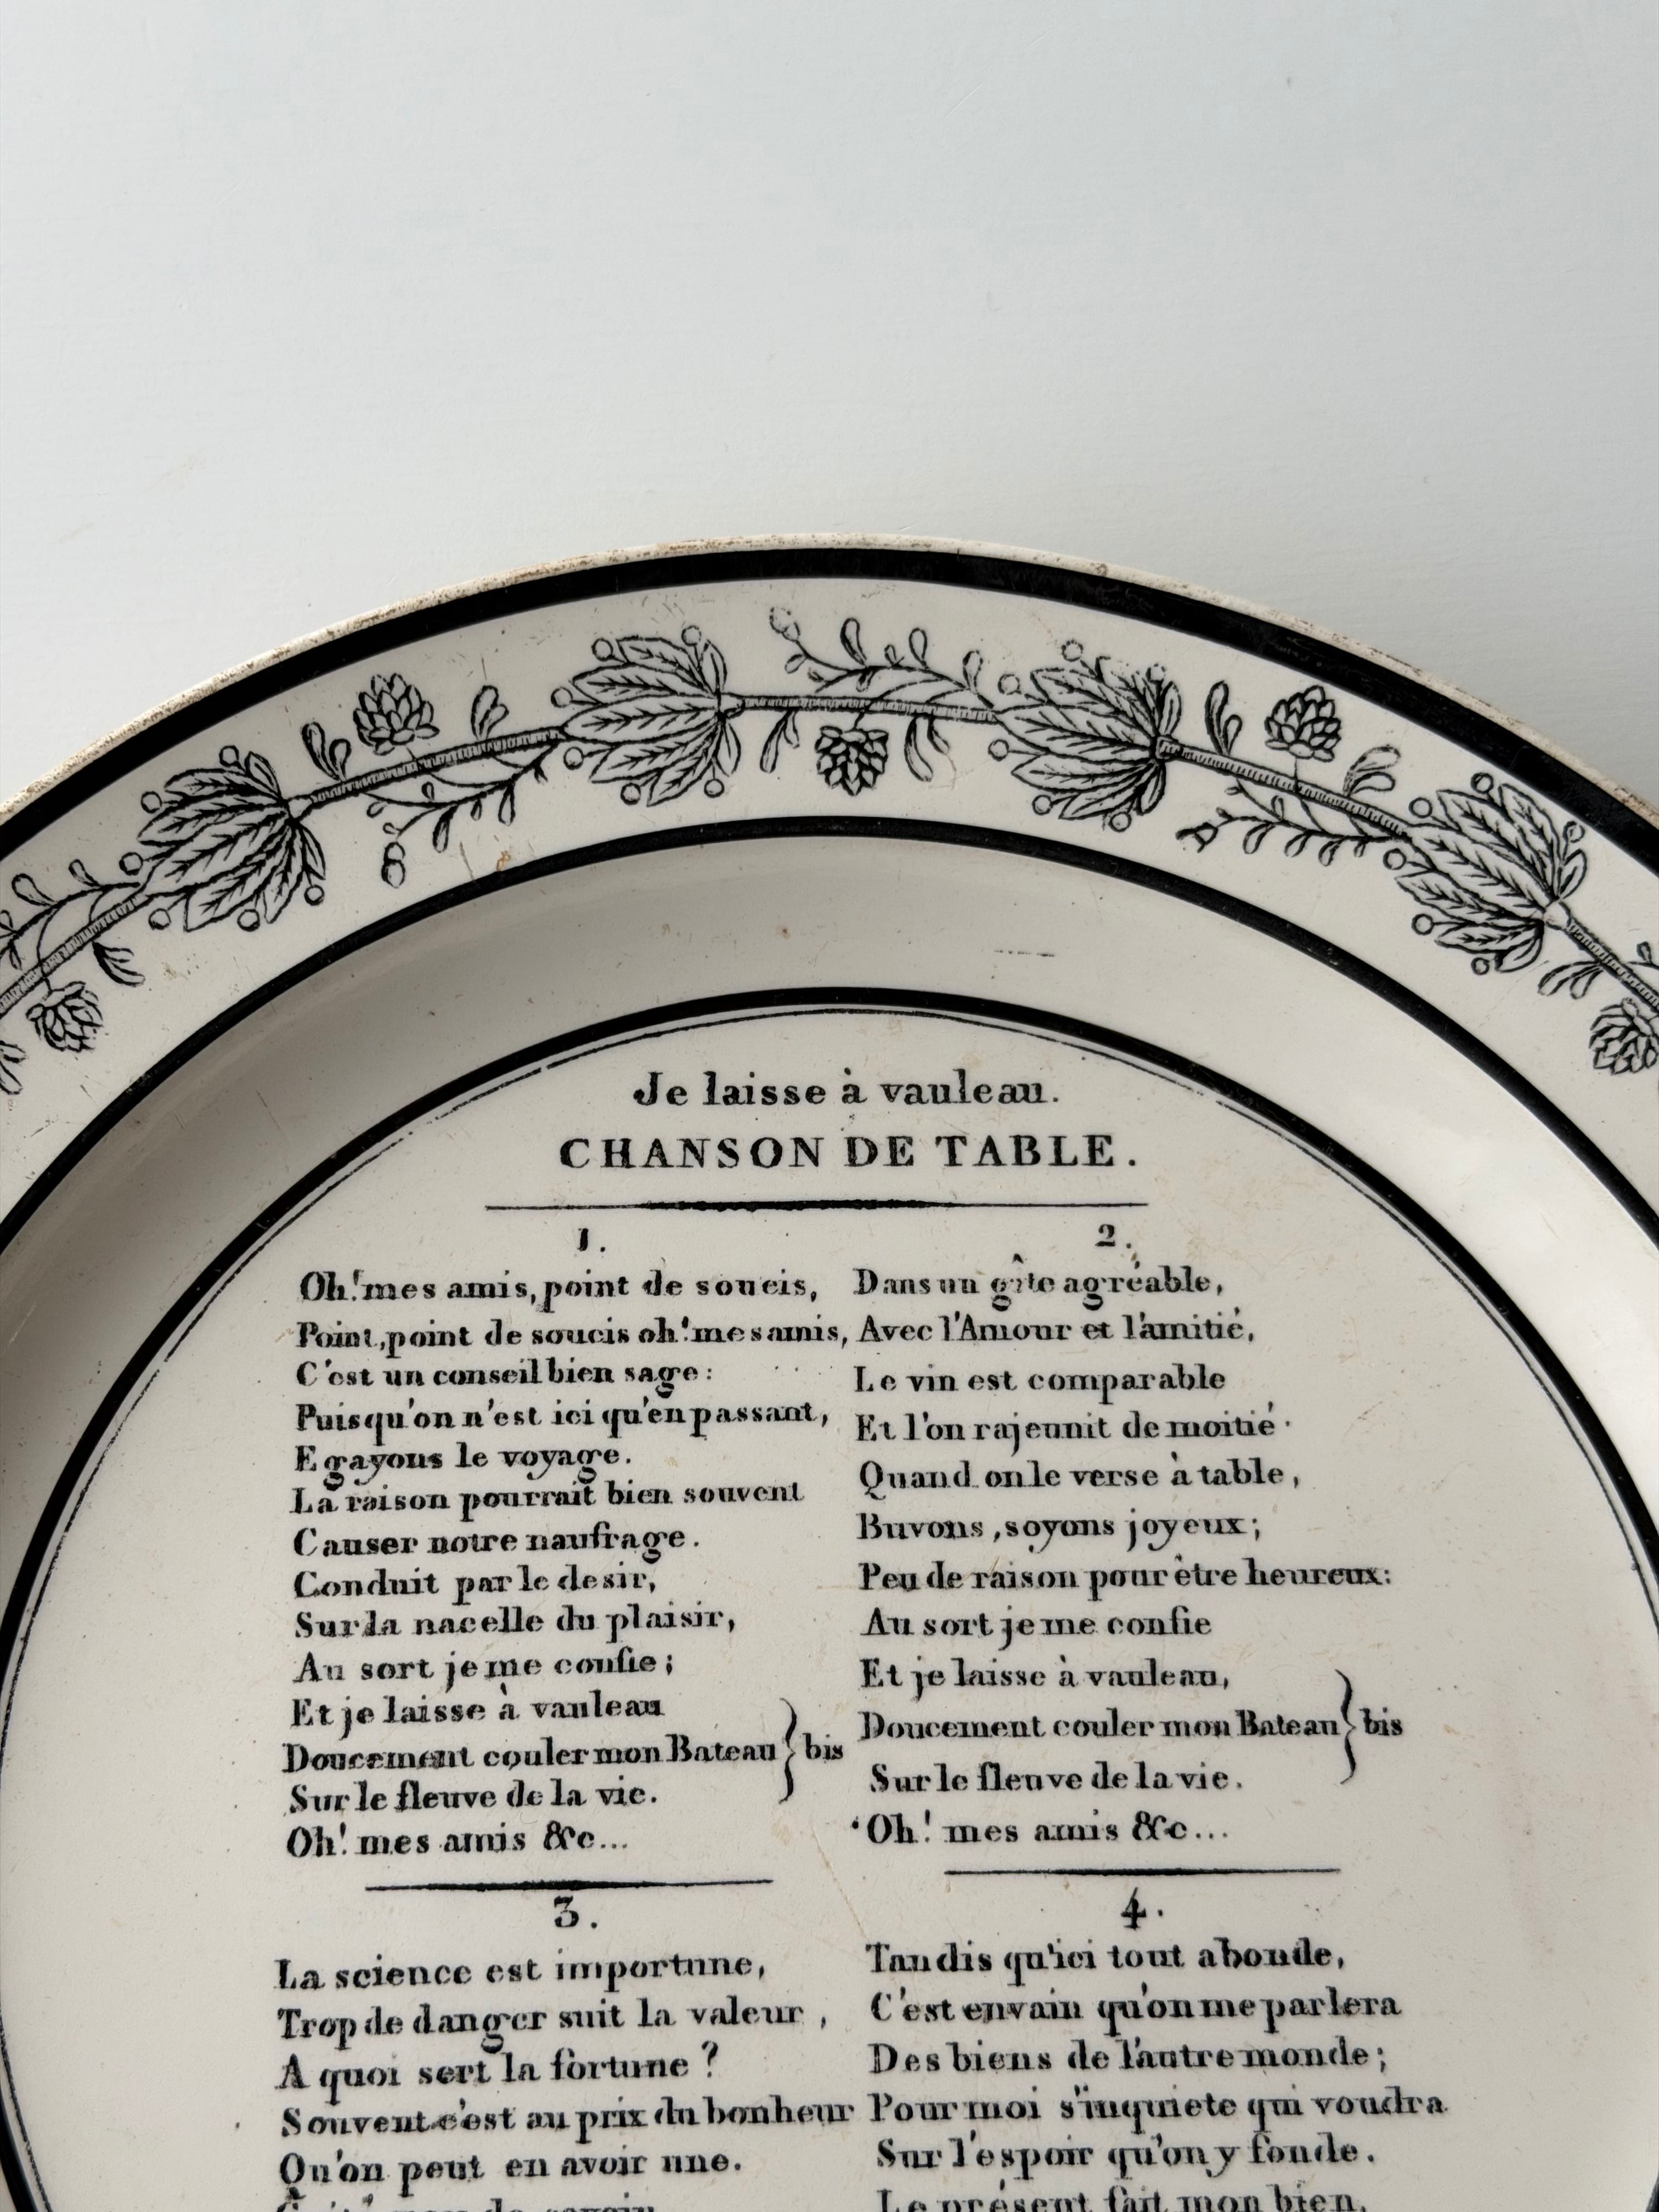 Je laisse à vauleau.
CHANSON DE TABLE.
1.
Oh! mes amis, point de soucis,
Point, point de soucis oh! mes amis,
C'est un conseil bien sage:
Puisqu'on n'est ici qu'en passant,
Egayons le voyage.
La raison pourrait bien souvent
Causer notre naufrage.
Conduit par le desir,
Sur la nacelle du plaisir,
Au sort je me confie;
Et je laisse à vauleau
Doucement couler mon Bateau } bis
Sur le fleuve de la vie.
Oh! mes amis &c...
2.
Dans un gîte agréable,
Avec l'Amour et l'amitié,
Le vin est comparable
Et l'on rajeunit de moitié.
Quand on le verse à table,
Buvons, soyons joyeux;
Peu de raison pour être heureux:
Au sort je me confie
Et je laisse à vauleau,
Doucement couler mon Bateau } bis
Sur le fleuve de la vie.
Oh! mes amis &c...
3.
La science est importune,
Trop de danger suit la valeur,
A quoi sert la fortune?
Souvent c'est au prix du bonheur
Qu'on peut en avoir une.
4.
Tandis qu'ici tout abonde,
C'est envain qu'on me parlera
Des biens de l'autre monde;
Pour moi s'inquiete qui voudra
Sur l'espoir qu'on y fonde.
Le présent fait mon bien,